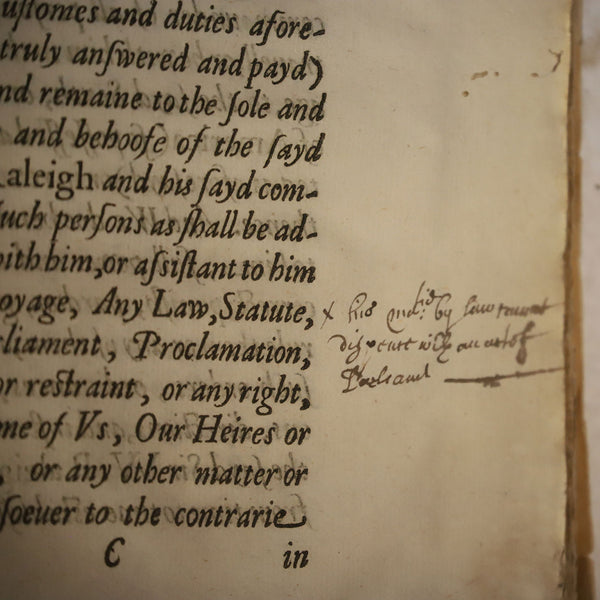 uſtomes and duties afore-
truly anſwered and payd)
nd remaine to the ſole and
and behooſe of the ſayd
aleigh and his ſayd com-
ſuch perſons as ſhall be ad-
with him, or aſsiſtant to him
oyage, Any Law, Statute,
rliament, Proclamation,
or reſtraint, or any right,
me of Vs, Our Heires or
, or any other matter or
ſoeuer to the contrarie
C in
x his ma:tie by law cannot
diſpence with an act of
Parleament